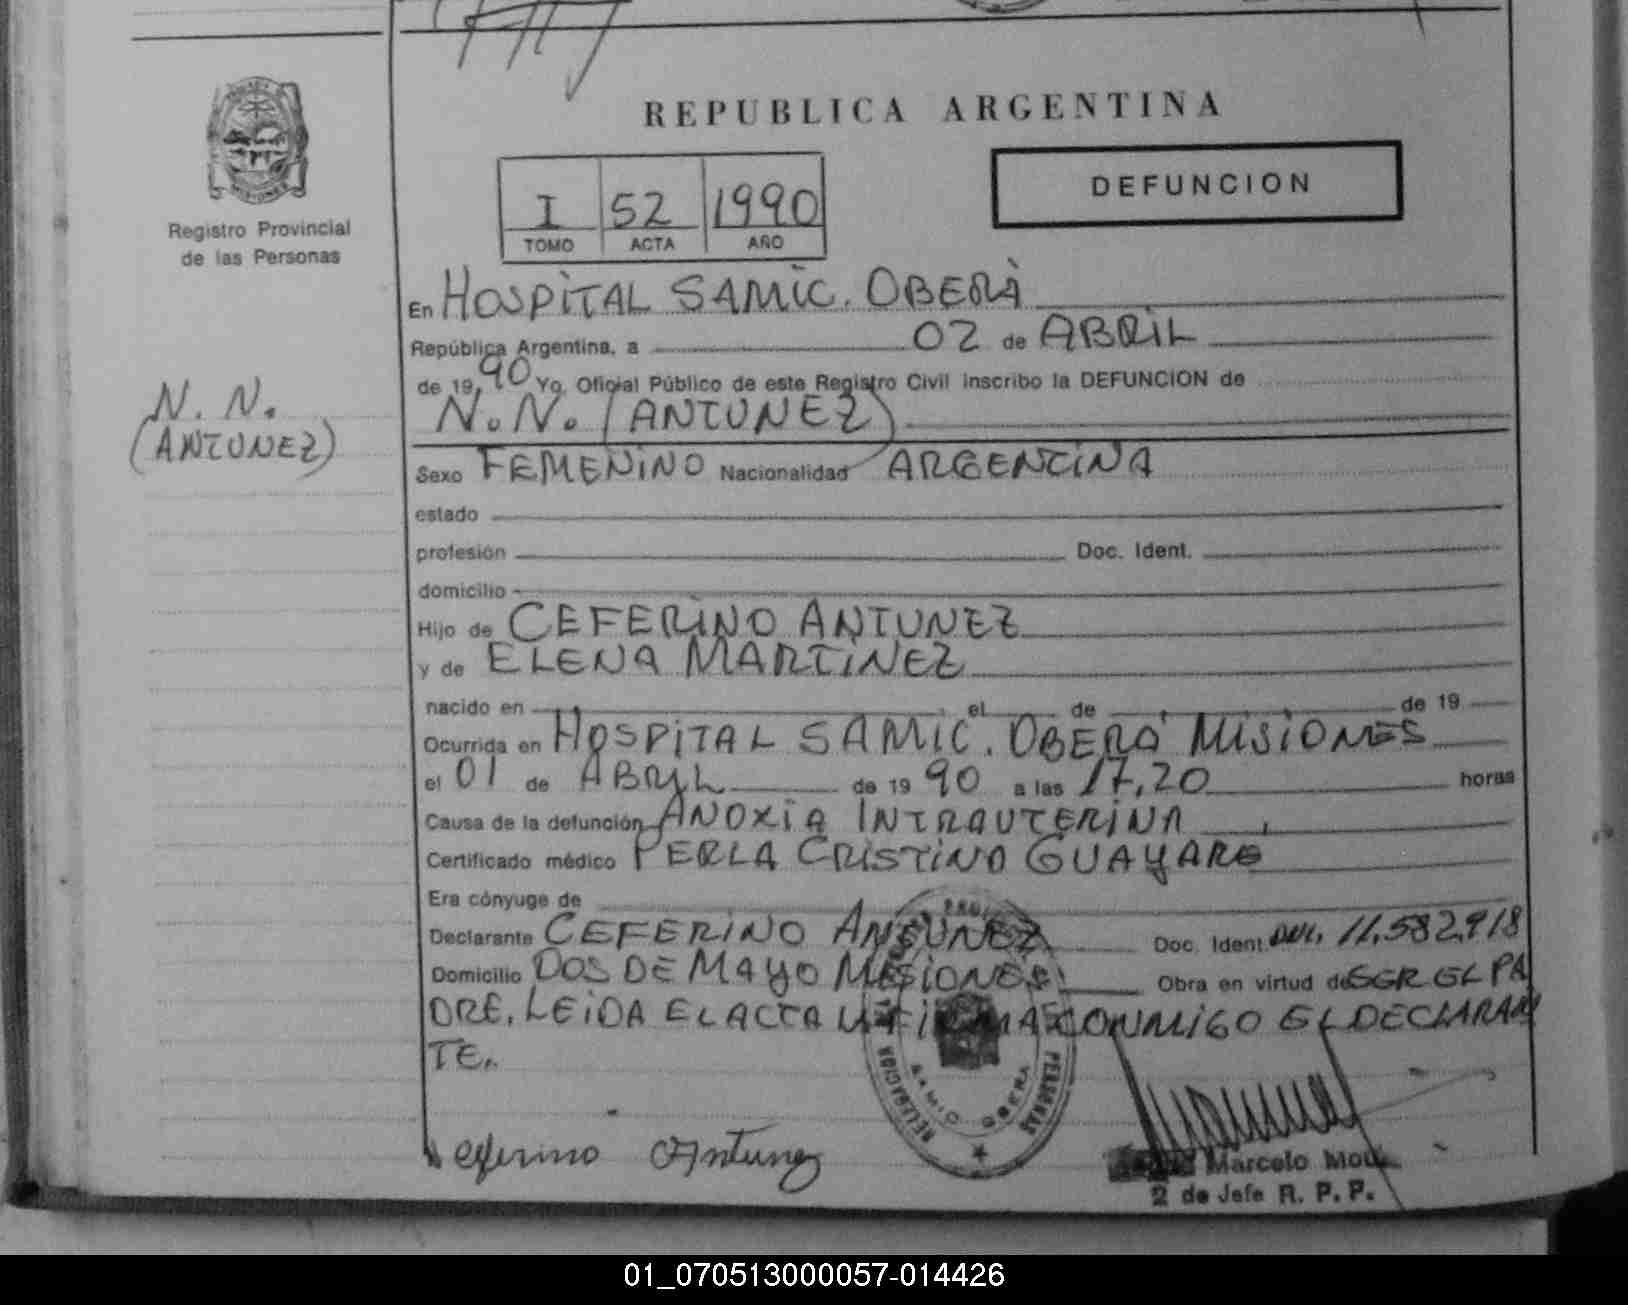 REPUBLICA ARGENTINA
DEFUNCION
I 52 1990
TOMO ACTA AÑO
Registro Provincial
de las Personas
N. N.
(ANTUNEZ)
En HOSPITAL SAMIC. OBERÁ
República Argentina, a 02 de ABRIL
de 19 90 Yo, Oficial Público de este Registro Civil inscribo la DEFUNCION de
N. N. (ANTUNEZ)
Sexo FEMENINO Nacionalidad ARGENTINA
estado
profesión Doc. Ident.
domicilio
Hijo de CEFERINO ANTUNEZ
y de ELENA MARTINEZ
nacido en el de de 19
Ocurrida en HOSPITAL SAMIC. OBERA MISIONES
el 01 de ABRIL de 19 90 a las 17,20 horas
Causa de la defunción ANOXIA INTRAUTERINA
Certificado médico PERLA CRISTINO GUAYARE
Era cónyuge de
Declarante CEFERINO ANTUNEZ Doc. Ident. DNI. 11.582.918
Domicilio DOS DE MAYO MISIONES Obra en virtud de SER EL PA
DRE. LEIDA EL ACTA CONMIGO EL DECLARAN
TE.
DELEGACION
PERSONAS
SAMIC OBERA
Ceferino Antunez
Marcelo
2 de Jefe R. P. P.
01_070513000057-014426